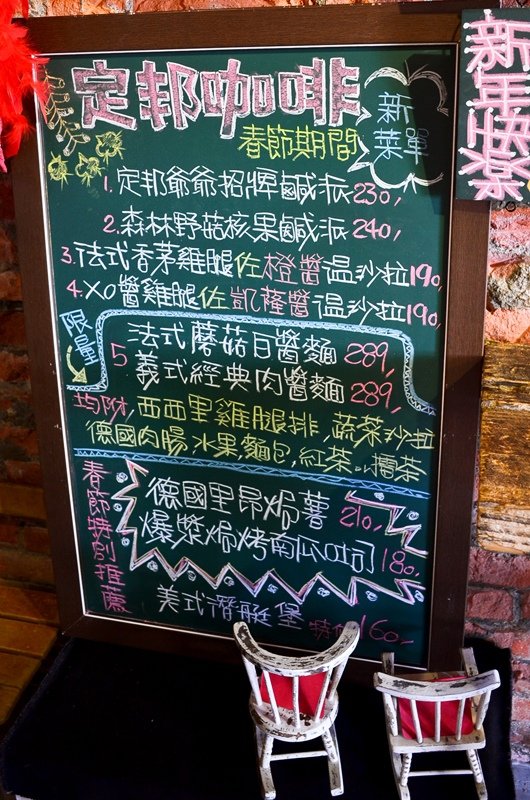 定邦咖啡
新菜單
新年快樂
春節期間
1. 定邦爺爺招牌鹹派 230,
2. 森林野菇核果鹹派 240,
3. 法式香茅雞腿佐橙醬溫沙拉 190,
4. XO醬雞腿佐凱薩醬溫沙拉 190,
限量
5 法式蘑菇白醬麵 289,
義式經典肉醬麵 289,
均附, 西西里雞腿排, 蔬菜沙拉
德國肉腸, 水果麵包, 紅茶 擂茶
春節特別推薦
德國里昂焗薯 210,
爆漿焗烤南瓜吐司 180,
美式潛艇堡 特價160,